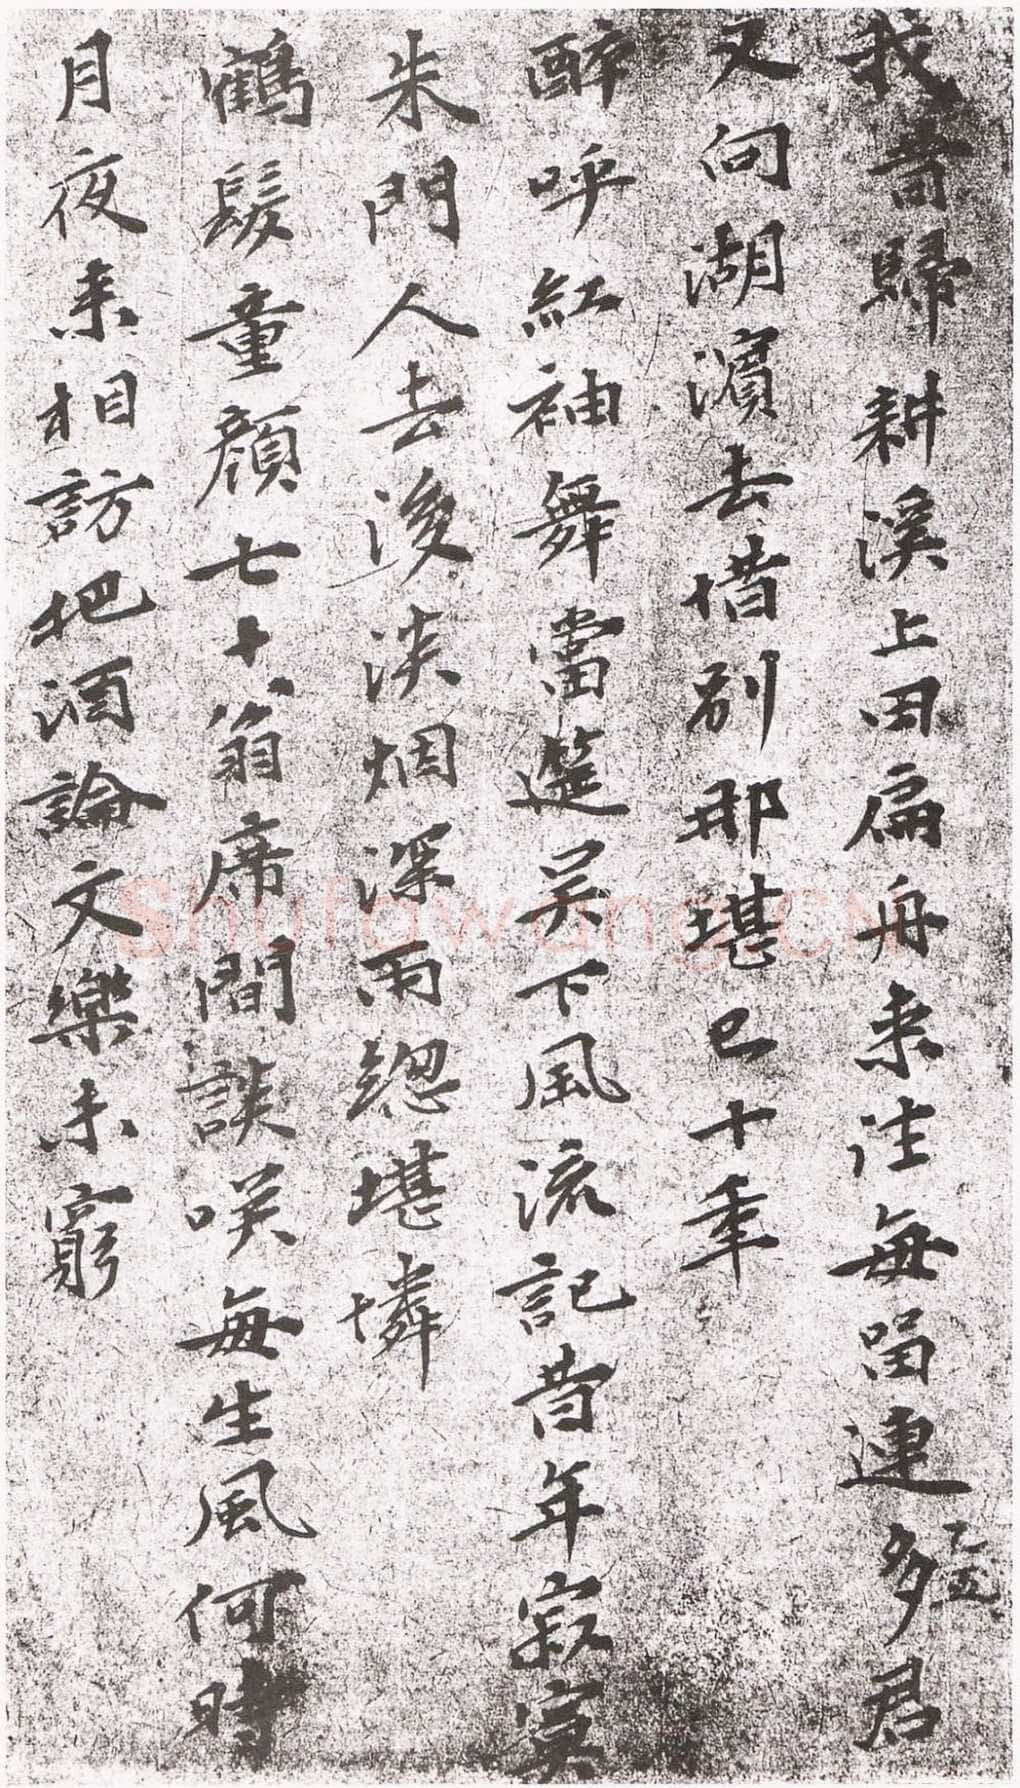 我昔歸耕溪上田扁舟来往每留連多君
又向湖濱去惜别那堪已十年
醉呼紅袖舞當筵吴下風流記昔年寂寞
朱門人去後淡烟深雨總堪憐
鶴髮童顔七十翁席間談咲每生風何時
月夜来相訪把酒論文樂未窮
shufawang.CN